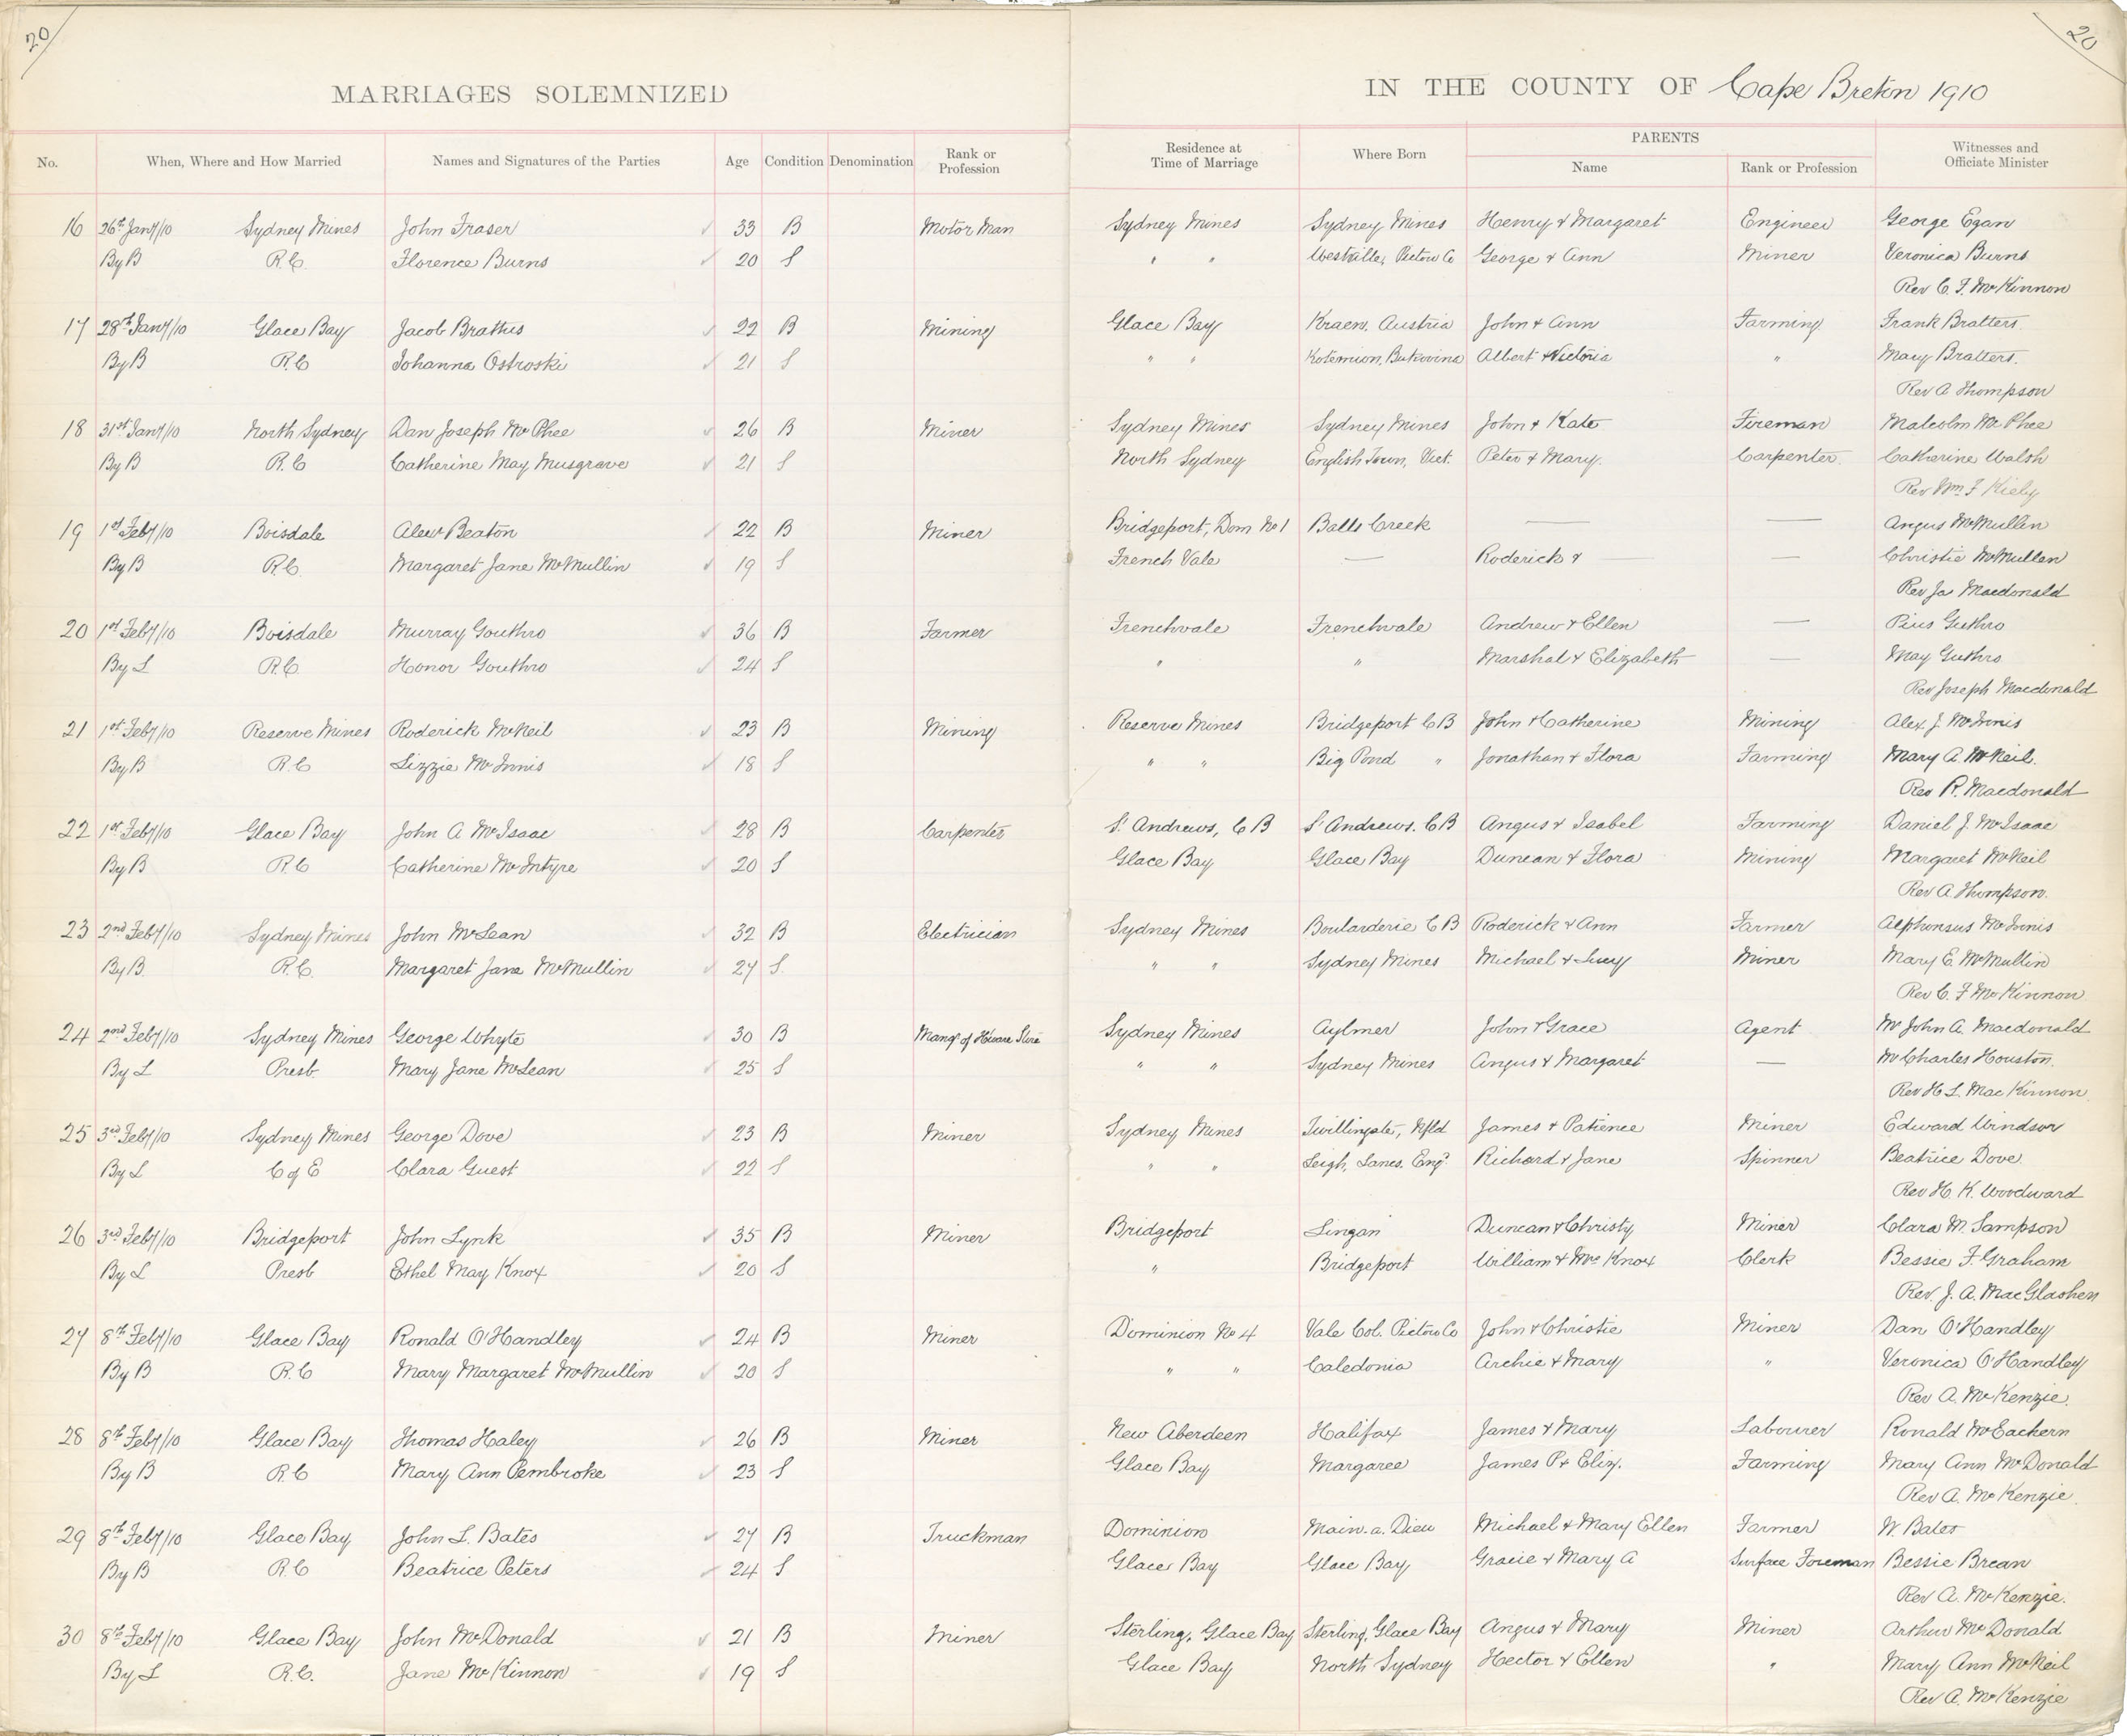 20
20
MARRIAGES SOLEMNIZED
IN THE COUNTY OF Cape Breton 1910
No. When, Where and How Married Names and Signatures of the Parties Age Condition Denomination Rank or Profession Residence at Time of Marriage Where Born PARENTS Name Rank or Profession Witnesses and Officiate Minister
16 26th Jany/10 Sydney Mines John Fraser 33 B Motor Man Sydney Mines Sydney Mines Henry & Margaret Engineer George Egan
By B R.C. Florence Burns 20 S " " Westville, Pictou Co George & Ann Miner Veronica Burns
Rev C. F. McKinnon
17 28th Jany/10 Glace Bay Jacob Brattus 22 B Mining Glace Bay Kraen, Austria John & Ann Farming Frank Bratters.
By B R.C Johanna Ostroski 21 S " " Kotemion, Bukovina Albert & Victoria " Mary Bratters.
Rev A Thompson
18 31st Jany/10 North Sydney Dan Joseph McPhee 26 B Miner Sydney Mines Sydney Mines John & Kate Fireman Malcolm McPhee
By B R.C Catherine May Musgrave 21 S North Sydney English Town, Vict. Peter & Mary. Carpenter Catherine Walsh
Rev Wm F Kiely
19 1st Feby/10 Boisdale Alex Beaton 22 B Miner Bridgeport, Dom No 1 Balls Creek — — Angus McMullin
By B R.C. Margaret Jane McMullin 19 S French Vale — Roderick & — — Christie McMullen
Rev Ja Macdonald
20 1st Feby/10 Boisdale Murray Gouthro 36 B Farmer Frenchvale Frenchvale Andrew & Ellen — Pius Guthro
By L R.C. Honor Gouthro 24 S " " Marshal & Elizabeth — May Guthro
Rev Joseph Macdonald
21 1st Feby/10 Reserve Mines Roderick McNeil 23 B Mining Reserve Mines Bridgeport C B John & Catherine Mining Alex J. McInnis
By B R.C Lizzie McInnis 18 S " " Big Pond " Jonathan & Flora Farming Mary A. McNeil.
Rev R. Macdonald
22 1st Feby/10 Glace Bay John A McIsaac 28 B Carpenter St Andrews, C B St Andrews. C B Angus & Isabel Farming Daniel J. McIsaac
By B R.C Catherine McIntyre 20 S Glace Bay Glace Bay Duncan & Flora Mining Margaret McNeil
Rev A. Thompson.
23 2nd Feby/10 Sydney Mines John McLean 32 B Electrician Sydney Mines Boularderie C B Roderick & Ann Farmer Alphonsus McInnis
By B R.C. Margaret Jane McMullin 27 S. " " Sydney Mines Michael & Lucy Miner Mary E. McMullin
Rev C. F McKinnon
24 2nd Feby/10 Sydney Mines George Whyte 30 B Mangr of H'ware Store Sydney Mines Aylmer John & Grace Agent Mr John A. Macdonald
By L Presb. Mary Jane McLean 25 S " " Sydney Mines Angus & Margaret — Mr Charles Houston.
Rev H L. MacKinnon
25 3rd Feby/10 Sydney Mines George Dove 23 B Miner Sydney Mines Twillingate, Nfld James & Patience Miner Edward Windsor
By L C of E Clara Guest 22 S " " Leigh, Lancs. Eng. Richard & Jane Spinner Beatrice Dove.
Rev H. K. Woodward
26 3rd Feby/10 Bridgeport John Lynk 35 B Miner Bridgeport Lingan Duncan & Christy Miner Clara M. Sampson
By L Presb Ethel May Knox 20 S " Bridgeport William & Mrs Knox Clerk Bessie F. Graham
Rev. J. A. MacGlashen
27 8th Feby/10 Glace Bay Ronald O'Handley 24 B Miner Dominion No 4 Vale Col. Pictou Co John & Christie Miner Dan O'Handley
By B R.C Mary Margaret McMullin 20 S " " Caledonia Archie & Mary " Veronica O'Handley
Rev A. McKenzie.
28 8th Feby/10 Glace Bay Thomas Haley 26 B Miner New Aberdeen Halifax James & Mary Labourer Ronald McEachern
By B R.C Mary Ann Pembroke 23 S Glace Bay Margaree James P & Eliz. Farming Mary Ann McDonald
Rev A. McKenzie.
29 8th Feby/10 Glace Bay John L. Bates 27 B Truckman Dominion Main-a-Dieu Michael & Mary Ellen Farmer W. Bates
By B R.C Beatrice Peters 24 S Glace Bay Glace Bay Gracie & Mary A Surface Foreman Bessie Brean
Rev A. McKenzie.
30 8th Feby/10 Glace Bay John McDonald 21 B Miner Sterling, Glace Bay Sterling, Glace Bay Angus & Mary Miner Arthur McDonald
By L R.C. Jane McKinnon 19 S Glace Bay North Sydney Hector & Ellen " Mary Ann McNeil
Rev A. McKenzie